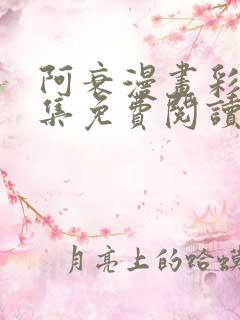 阿衰漫畫彩
集免費閱讀
月亮上的哈蟆